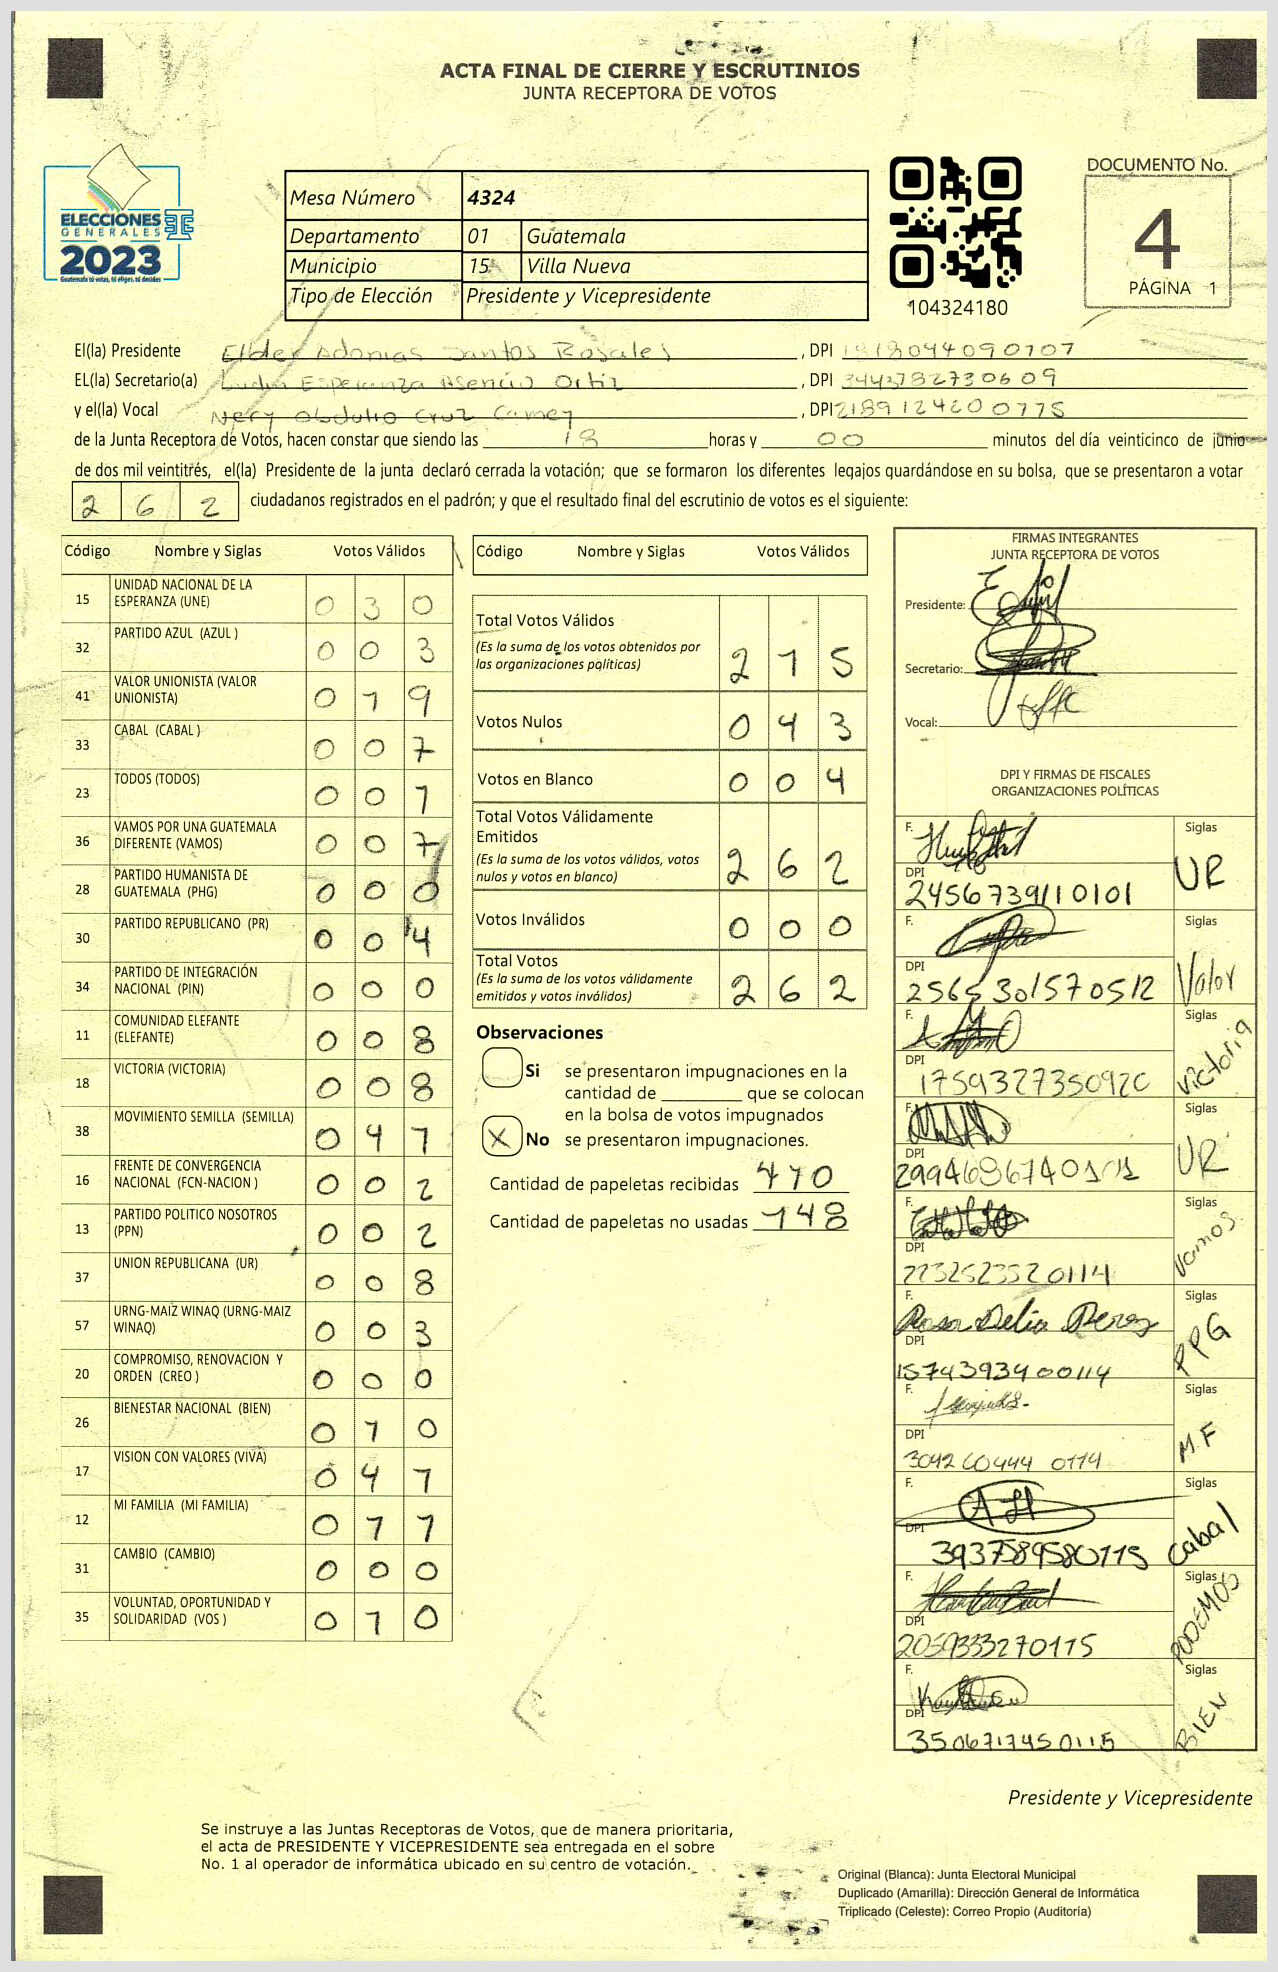 ACTA FINAL DE CIERRE Y ESCRUTINIOS
JUNTA RECEPTORA DE VOTOS
ELECCIONES
GENERALES
2023
Guatemala tú votas, tú eliges, tú decides
Mesa Número 4324
Departamento 01 Guatemala
Municipio 15 Villa Nueva
Tipo de Elección Presidente y Vicepresidente
104324180
DOCUMENTO No.
4
PÁGINA 1
El(la) Presidente Elder Adonias Santos Rosales, DPI 044090707
EL(la) Secretario(a) Esperanza Asencio Ortiz, DPI 3443782730609
y el(la) Vocal Nery Obdulio Cruz Camey, DPI 2189124200775
de la Junta Receptora de Votos, hacen constar que siendo las 18 horas y 00 minutos del día veinticinco de junio
de dos mil veintitrés, el(la) Presidente de la junta declaró cerrada la votación; que se formaron los diferentes legajos guardándose en su bolsa, que se presentaron a votar
2 6 2 ciudadanos registrados en el padrón; y que el resultado final del escrutinio de votos es el siguiente:
Código Nombre y Siglas Votos Válidos
15 UNIDAD NACIONAL DE LA ESPERANZA (UNE) 0 3 0
32 PARTIDO AZUL (AZUL ) 0 0 3
41 VALOR UNIONISTA (VALOR UNIONISTA) 0 1 9
33 CABAL (CABAL ) 0 0 7
23 TODOS (TODOS) 0 0 1
36 VAMOS POR UNA GUATEMALA DIFERENTE (VAMOS) 0 0 7
28 PARTIDO HUMANISTA DE GUATEMALA (PHG) 0 0 0
30 PARTIDO REPUBLICANO (PR) 0 0 4
34 PARTIDO DE INTEGRACIÓN NACIONAL (PIN) 0 0 0
11 COMUNIDAD ELEFANTE (ELEFANTE) 0 0 8
18 VICTORIA (VICTORIA) 0 0 8
38 MOVIMIENTO SEMILLA (SEMILLA) 0 4 1
16 FRENTE DE CONVERGENCIA NACIONAL (FCN-NACION ) 0 0 2
13 PARTIDO POLITICO NOSOTROS (PPN) 0 0 2
37 UNION REPUBLICANA (UR) 0 0 8
57 URNG-MAIZ WINAQ (URNG-MAIZ WINAQ) 0 0 3
20 COMPROMISO, RENOVACION Y ORDEN (CREO ) 0 0 0
26 BIENESTAR NACIONAL (BIEN) 0 1 0
17 VISION CON VALORES (VIVA) 0 4 1
12 MI FAMILIA (MI FAMILIA) 0 1 1
31 CAMBIO (CAMBIO) 0 0 0
35 VOLUNTAD, OPORTUNIDAD Y SOLIDARIDAD (VOS ) 0 1 0
Código Nombre y Siglas Votos Válidos
Total Votos Válidos
(Es la suma de los votos obtenidos por las organizaciones políticas) 2 1 5
Votos Nulos 0 4 3
Votos en Blanco 0 0 4
Total Votos Válidamente Emitidos
(Es la suma de los votos válidos, votos nulos y votos en blanco) 2 6 2
Votos Inválidos 0 0 0
Total Votos
(Es la suma de los votos válidamente emitidos y votos inválidos) 2 6 2
Observaciones
Si se presentaron impugnaciones en la
cantidad de ________ que se colocan
en la bolsa de votos impugnados
X No se presentaron impugnaciones.
Cantidad de papeletas recibidas 410
Cantidad de papeletas no usadas 148
FIRMAS INTEGRANTES
JUNTA RECEPTORA DE VOTOS
Presidente:
Secretario:
Vocal:
DPI Y FIRMAS DE FISCALES
ORGANIZACIONES POLÍTICAS
F. Siglas
DPI UR
2456739110101
F. Siglas
DPI Valor
2565301570512
F. Siglas
DPI Victoria
1759327350920
F. Siglas
DPI UR
2994686740101
F. Siglas
DPI Vamos
2232523520114
F. Rosa Delia Perez Siglas
DPI PPG
1574393400114
F. Siglas
DPI M.F
3042604440114
F. Siglas
DPI Cabal
3937589580115
F. Siglas
DPI PODEMOS
2059333270115
F. Siglas
DPI BIEN
3506717450115
Presidente y Vicepresidente
Se instruye a las Juntas Receptoras de Votos, que de manera prioritaria,
el acta de PRESIDENTE Y VICEPRESIDENTE sea entregada en el sobre
No. 1 al operador de informática ubicado en su centro de votación.
Original (Blanca): Junta Electoral Municipal
Duplicado (Amarilla): Dirección General de Informática
Triplicado (Celeste): Correo Propio (Auditoría)